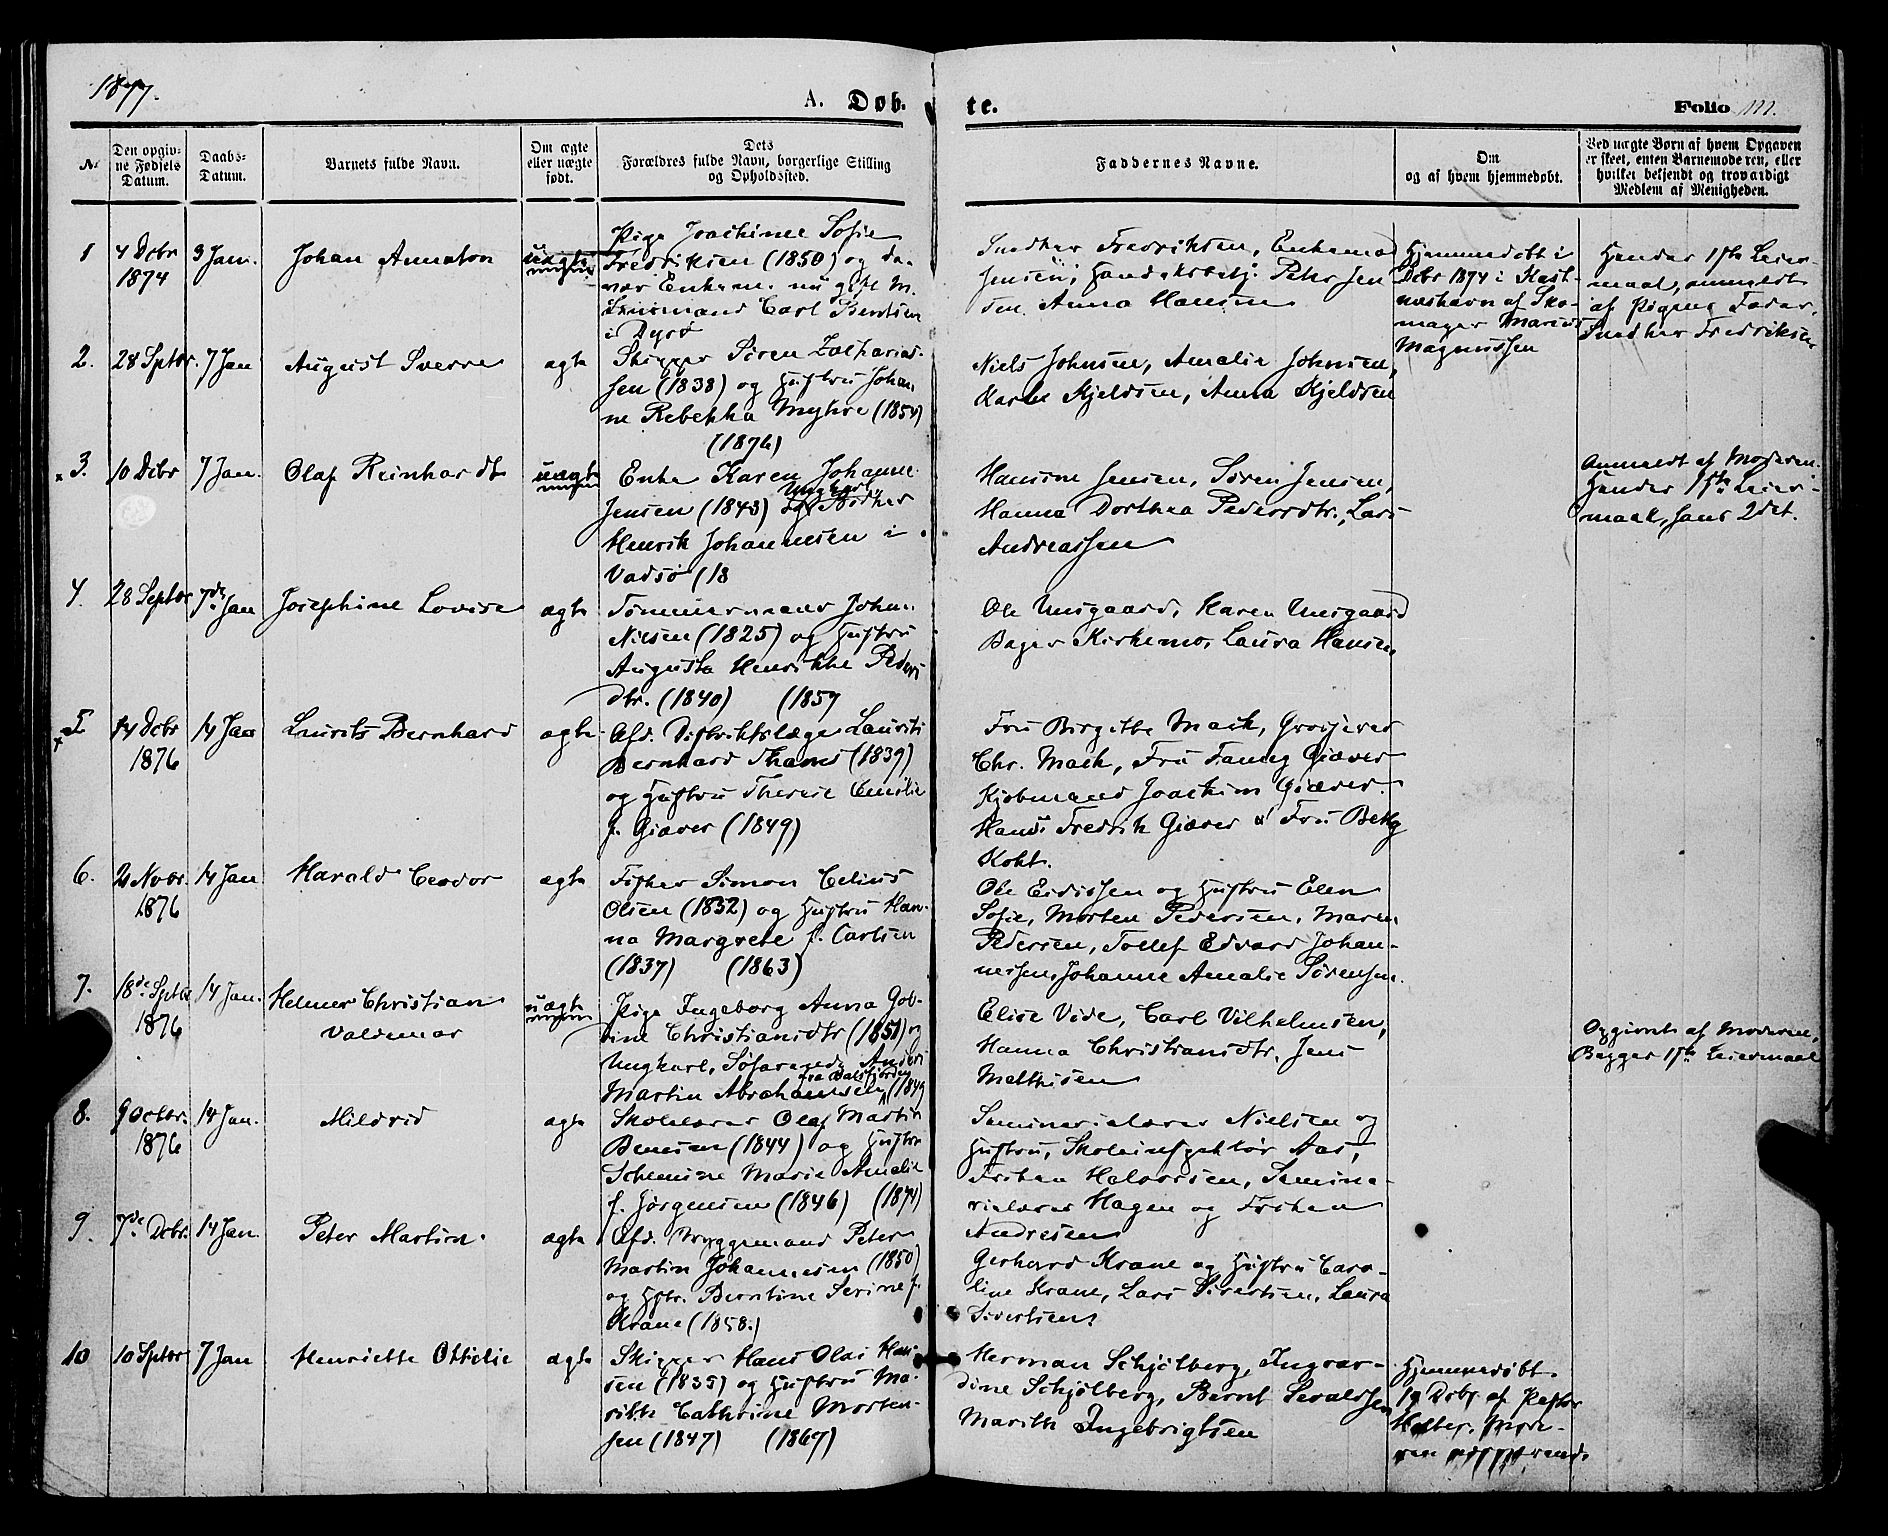 1877.
A. Døb-
te.
Folio 111.
Nr
Den opgiv-
ne Fødsels
Datum.
Daabs-
Datum.
Barnets fulde Navn.
Om ægte
eller uægte
født.
Dets
Forældres fulde Navn, borgerlige Stilling
og Opholdssted.
Faddernes Navne.
Om
og af hvem hjemmedøbt.
Ved uægte Børn af hvem Opgaven
er skeet, enten Barnemoderen, eller
hvilket bekjendt og troværdigt
Medlem af Menigheden.
1
4 Dcbr
1874
3 Jan.
Johan Annaton
uægte
Pige Joachimne Sofie
Fredriksen (1850) og da-
vær Enkem. nu gift M.
Carl Berntsen
i Dyrø
Snedker Fredriksen, Enkemad
Jensen, Handelsbetj. Peter Jen
sen, Anna Hansen
Hjemmedøbt i
Dcbr 1874 i Kast-
næshavn af Sko-
mager Marius
Magnussen
Hendes 1ste Leier-
maal, anmeldt
af Pigens Fader,
Snedker Fredriksen
2.
28 Sptbr.
7 Jan
August Sverre
ægte
Skipper Sören Zacharias-
sen (1838) og Hustru Johan
ne Rebekka Myhre (1854)
(1876)
Niels Johnsen, Amalie Johnsen,
Karen Kjeldsen, Anna Kjeldsen
3.
10 Dcbr
7 Jan.
Olaf Reinhardt
uægte
Enke Karen Johanne
Jensen (1843) og Ungkarl Bødker
Henrik Johannesen i
Vadsø (18
Hansine Jensen, Søren Jensen,
Hanna Dorthea Pedersdtr., Lars
Andreassen
Anmeldt af Moderen.
Hendes 1ste Leier-
maal, hans 2det.
4.
28 Septbr
7de Jan
Josephine Lovise
ægte
Tømmermand Johan
Nilsen (1825) og Hustru
Augusta Henrikke Peders
dtr. (1840) (1859
Ole Unsgaard, Karen Unsgaard
Bager Kirkemo, Laura Hansen,
5
14 Dcbr
1876
14 Jan
Laurits Bernhard
ægte
Afd. Distriktslæge Laurits
Bernhard Thams (1839)
og Hustru Therese Emilie
f. Giæver (1849)
Fru Birgitte Mack, Groserer
Chr. Mack, Fru Fanny Giæver
Kjøbmand Joachim Giæver.
Hans Fredrik Giæver & Fru Betty
Koht.
6.
2 Novbr.
1876
14 Jan
Harald Ceodor
ægte
Fisker Simon Celius
Olsen (1832) og Hustru Han-
na Margrete f. Carlsen
(1837) (1863)
Ole Eidissen og Hustru Elen
Sofie, Morten Pedersen, Maren
Pedersen, Tollef Edvard Johan-
nessen, Johanne Amalie Sørensen.
7.
18de Sptbr
1876
14 Jan.
Helmer Christian
Valdemar
uægte
Pige Ingeborg Anna Gol-
line Christiansdtr (1851) og
Ungkarl, Søfarende Anders
Martin Abrahamsen fra Balsfjorden (1849
Elise Vide, Carl Vilhelmsen,
Hanna Christiansdtr, Jens
Mathisen
Opgivet af Moderen,
Begges 1ste Leiermaal
8.
9 Octbr.
1876
14 Jan.
Mildrid
ægte
Skolelærer Olaf Martin
Benesen (1844) og Hustru
Schemine Marie Amalie
f. Jørgensen (1846) (1874)
Seminarielærer Nielsen og
Hustru, Skoleinspektør Aas,
Frøken Halvorsen, Semina-
rielærer Hagen og Frøken
Andresen
9.
7de Dcbr.
14 Jan.
Peter Martin.
ægte
Afd. Bryggemand Peter
Martin Johannesen (1850)
og Hstr. Berntine Serine f.
Krane (1858.)
Gerhard Krane og Hustru Caro-
line Krane, Lars Sivertsen, Laura
Sivertsen.
10
10 Sptbr
7 Jan
Henriette Ottilie
ægte
Skipper Hans Olai Han-
sen (1835) og Hustru Ma-
rith Cathrine Morten-
sen (1847) (1867)
Herman Schjølberg, Ingvar-
dine Schjølberg, Bernt Sevaldsen
Marith Ingebrigtsen
Hjemmedøbt
19 Dcbr af Pastor
Holter, Mode-
ren